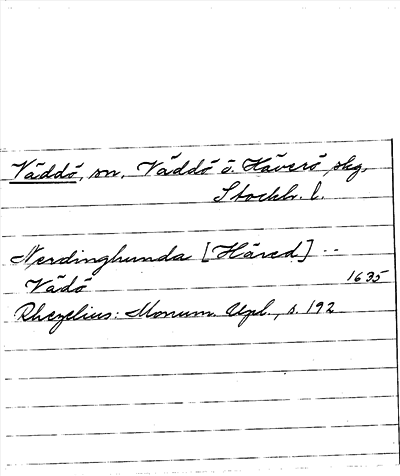 Väddö, sn, Väddö o. Häverö skg,
Stockh. l.
Nerdinghunda [Härad] --
Vädö 1635
Rhezelius: Monum. Upl., s. 192